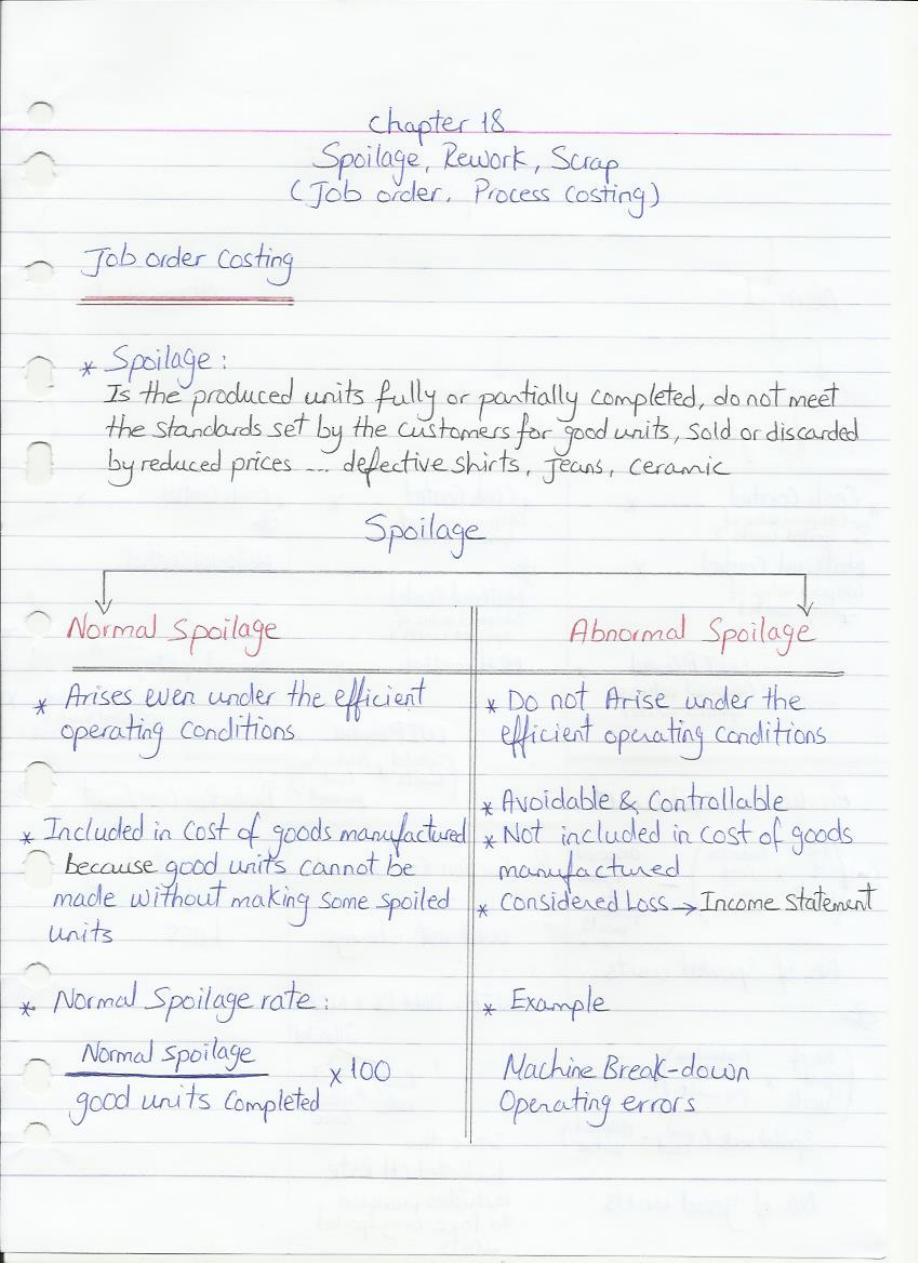 Chapter 18
Spoilage, Rework, Scrap
(Job order, Process Costing)
Job order Costing
* Spoilage:
Is the produced units fully or partially completed, do not meet
the standards set by the customers for good units, sold or discarded
by reduced prices ... defective shirts, jeans, ceramic
Spoilage
Normal Spoilage
* Arises even under the efficient
operating conditions
* Included in cost of goods manufactured
because good units cannot be
made without making some spoiled
units
* Normal Spoilage rate:
Normal spoilage
good units Completed
x100
Abnormal Spoilage
* Do not Arise under the
efficient operating conditions
* Avoidable & Controllable
* Not included in cost of goods
manufactured
* Considered Loss → Income Statement
* Example
Machine Break-down
Operating errors